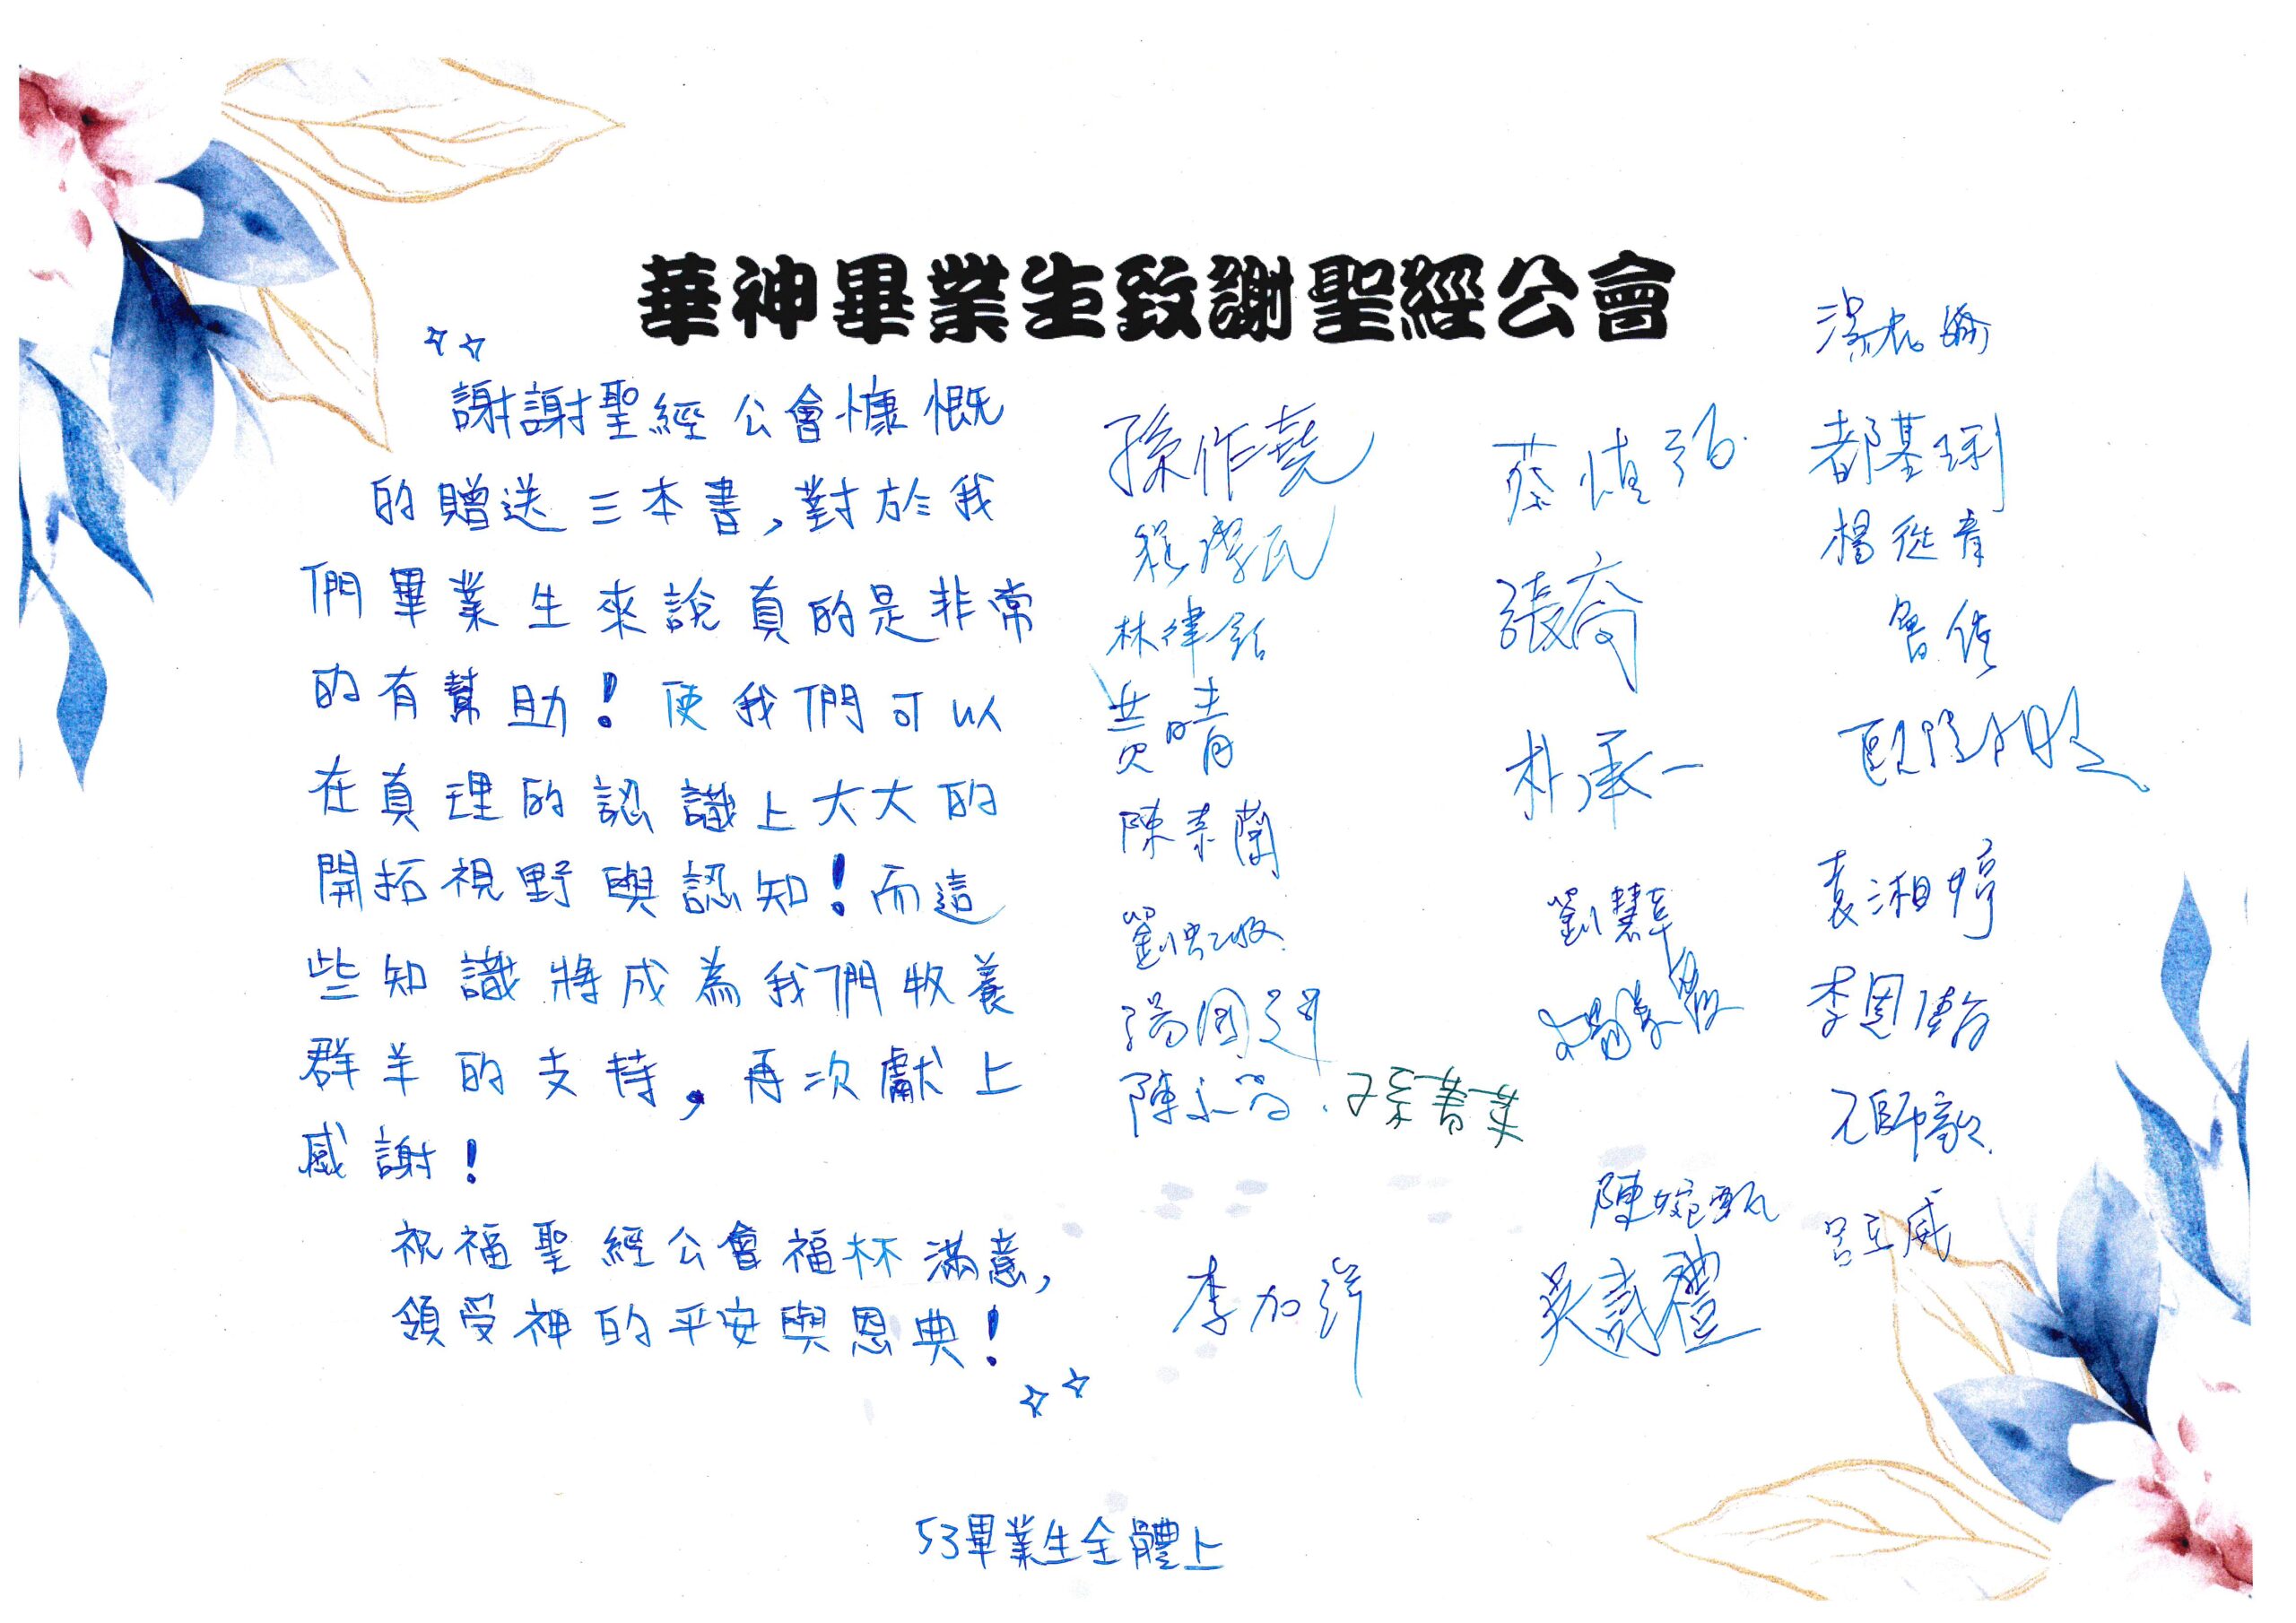 華神畢業生致謝聖經公會
謝謝聖經公會慷慨
的贈送三本書,對於我
們畢業生來說真的是非常
的有幫助!使我們可以
在真理的認識上大大的
開拓視野與認知!而這
些知識將成為我們牧養
群羊的支持,再次獻上
感謝!
祝福聖經公會福杯滿意,
領受神的平安與恩典!
孫作堯
林律
黃晴
陳素蘭
陳
孫菁菁
李加
蔡慎
張喬
朴承一
劉慧
陳婉甄
吳詩禮
都基琍
楊從育
魯
袁湘婷
李恩
師
呂立威
53畢業生全體上